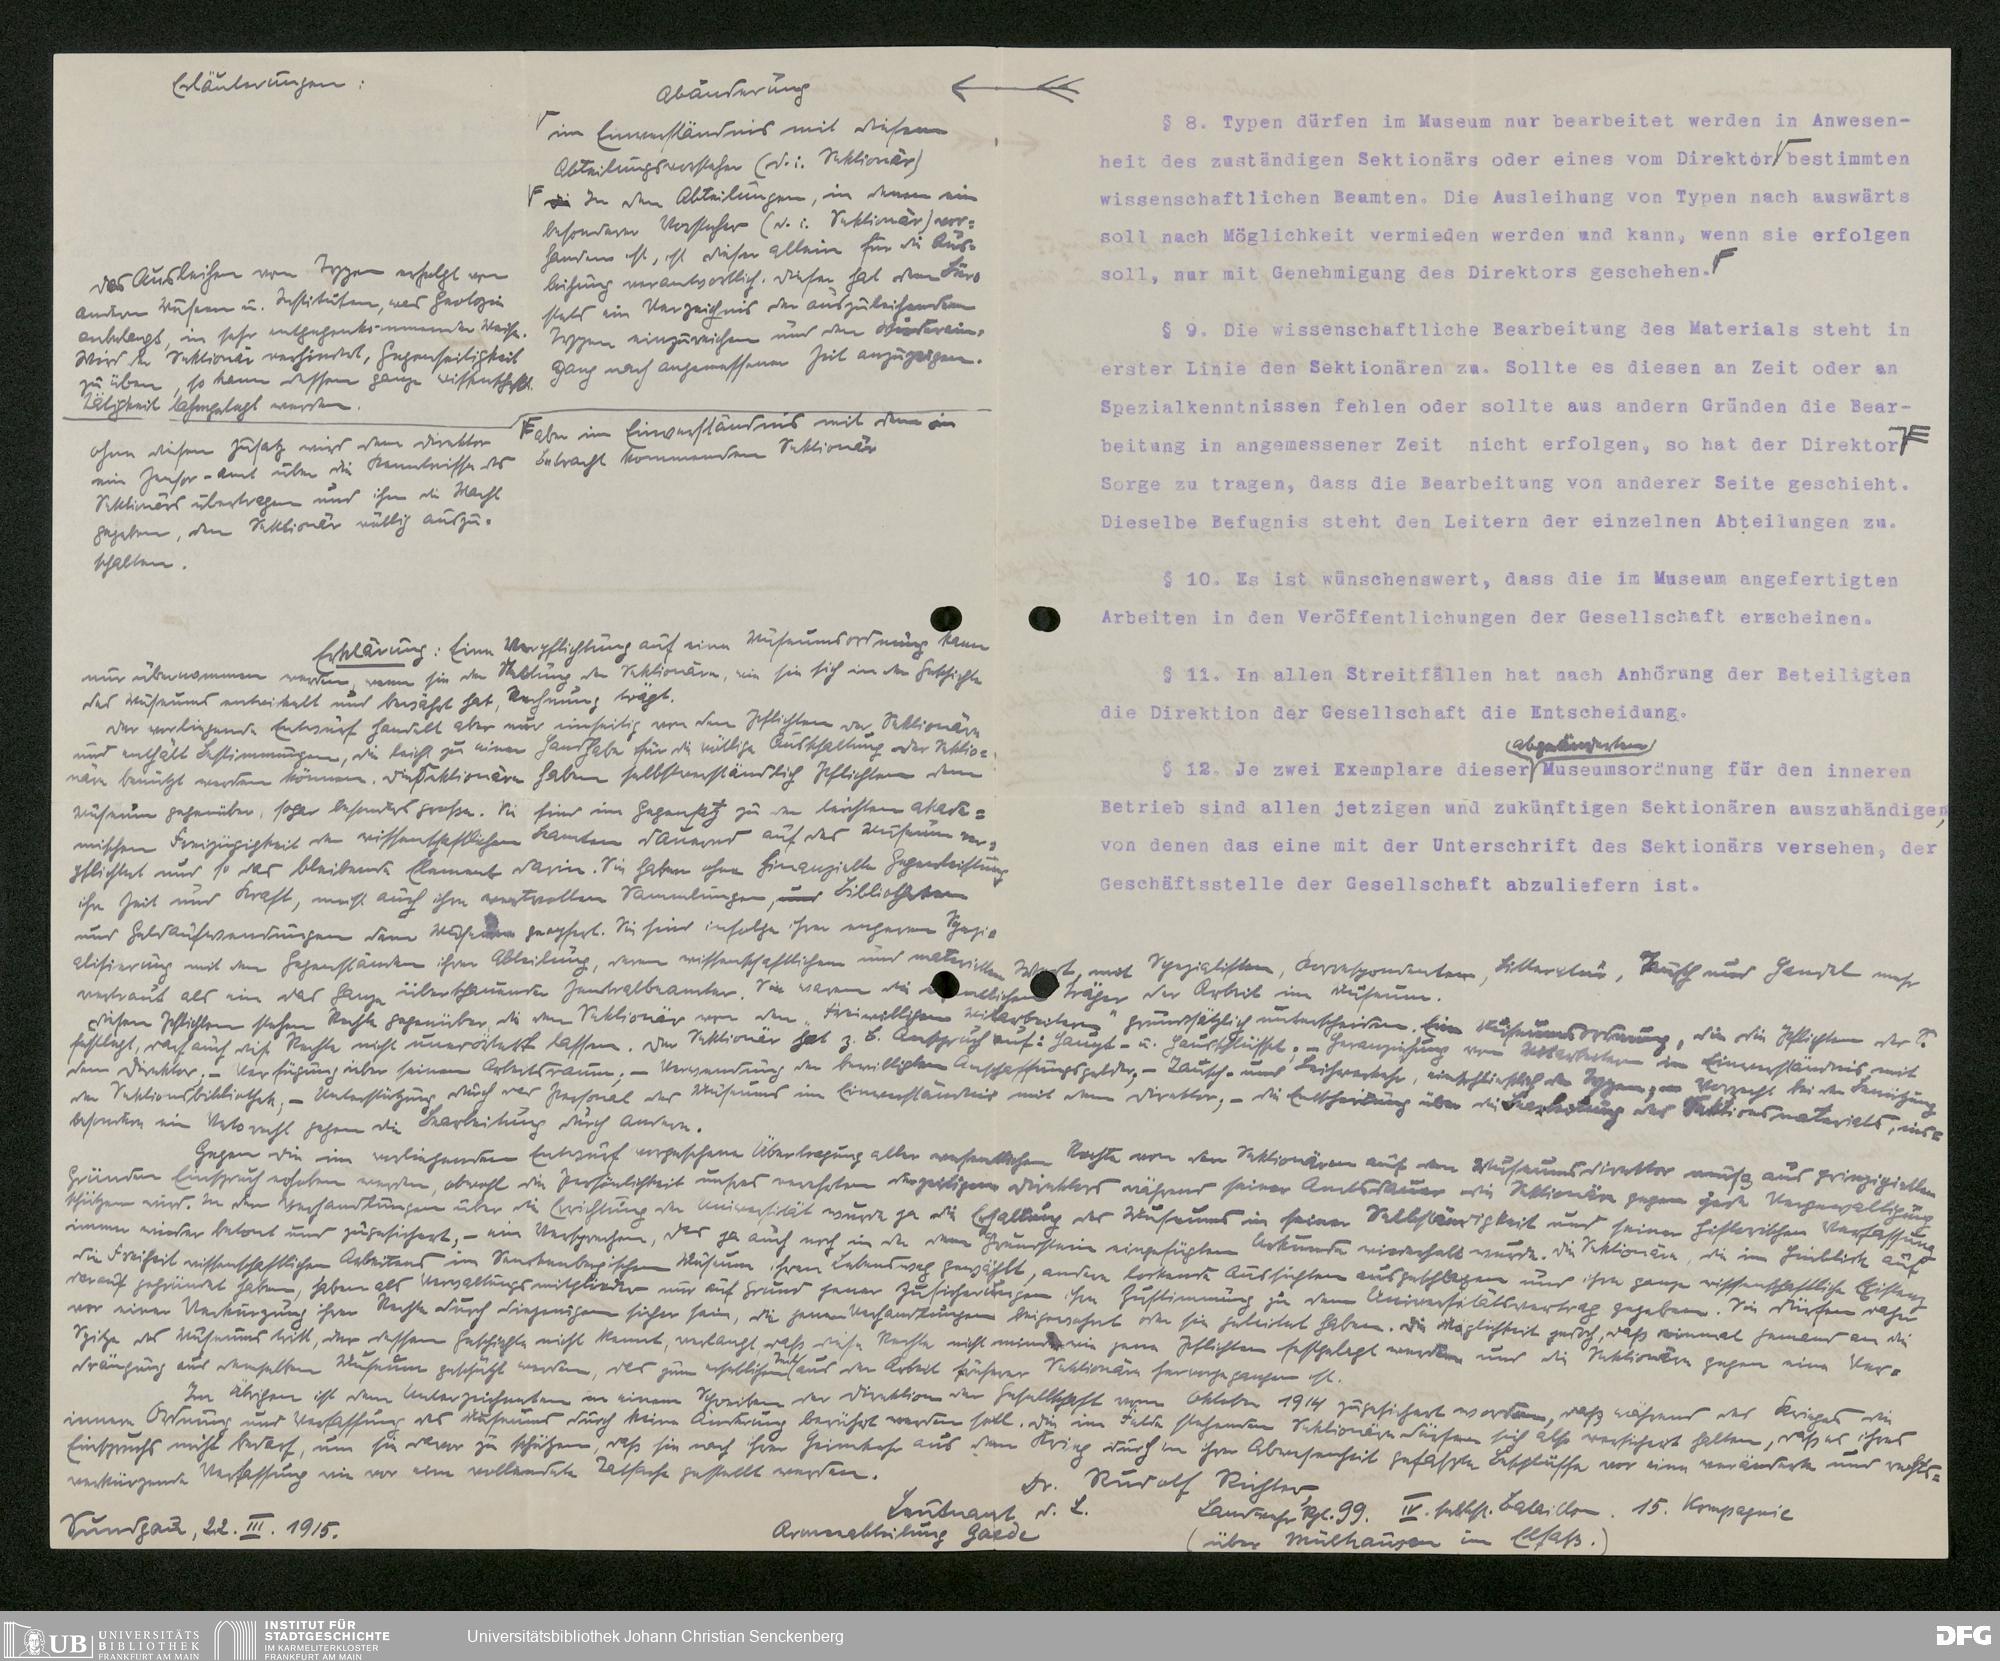 Erläuterungen:
Das Ausleihen von Typen erfolgt von
andern Museen u. Instituten, was Geologie
anbelangt, in sehr entgegenkommender Weise.
Wird der Sektionär verhindert, Gegenseitigkeit
zu üben, so kann dessen ganze wissenschaftl.
Tätigkeit lahmgelegt werden.
Ohne diesen Zusatz wird dem Direktor
ein Zensor-Amt über die Kenntnisse des
Sektionärs übertragen und ihm die Macht
gegeben, den Sektionär völlig auszu-
schalten.
Abänderung
im Einverständnis mit diesem
Abteilungsvorsteher (d. i. Sektionär)
In den Abteilungen, in denen ein
besonderer Vorsteher (d. i. Sektionär) vor-
handen ist, ist dieser allein für die Aus-
leihung verantwortlich. Dieser hat dem Büro
stets ein Verzeichnis der auszuleihenden
Typen einzureichen und den Wiederein-
gang nach angemessener Zeit anzuzeigen.
aber im Einverständnis mit dem in
Betracht kommenden Sektionär
§ 8. Typen dürfen im Museum nur bearbeitet werden in Anwesen-
heit des zuständigen Sektionärs oder eines vom Direktor bestimmten
wissenschaftlichen Beamten. Die Ausleihung von Typen nach auswärts
soll nach Möglichkeit vermieden werden und kann, wenn sie erfolgen
soll, nur mit Genehmigung des Direktors geschehen.
§ 9. Die wissenschaftliche Bearbeitung des Materials steht in
erster Linie den Sektionären zu. Sollte es diesen an Zeit oder an
Spezialkenntnissen fehlen oder sollte aus andern Gründen die Bear-
beitung in angemessener Zeit nicht erfolgen, so hat der Direktor
Sorge zu tragen, dass die Bearbeitung von anderer Seite geschieht.
Dieselbe Befugnis steht den Leitern der einzelnen Abteilungen zu.
§ 10. Es ist wünschenswert, dass die im Museum angefertigten
Arbeiten in den Veröffentlichungen der Gesellschaft erscheinen.
§ 11. In allen Streitfällen hat nach Anhörung der Beteiligten
die Direktion der Gesellschaft die Entscheidung.
(abgeänderten)
§ 12. Je zwei Exemplare dieser Museumsordnung für den inneren
Betrieb sind allen jetzigen und zukünftigen Sektionären auszuhändigen,
von denen das eine mit der Unterschrift des Sektionärs versehen, der
Geschäftsstelle der Gesellschaft abzuliefern ist.
Erklärung: Eine Verpflichtung auf eine Museumsordnung kann
nur übernommen werden, wenn sie der Stellung der Sektionäre, wie sie sich in der Geschichte
des Museums entwickelt und bewährt hat, Rechnung trägt.
Der vorliegende Entwurf handelt aber nur einseitig von den Pflichten der Sektionäre
und enthält Bestimmungen, die leicht zu einer Handhabe für die völlige Ausschaltung der Sektio-
näre benützt werden können. Die Sektionäre haben selbstverständlich Pflichten dem
Museum gegenüber, sogar besonders grosse. Sie sind im Gegensatz zu der leichten akade-
mischen Freizügigkeit der wissenschaftlichen Beamten dauernd auf das Museum ver-
pflichtet und so das bleibende Element darin. Sie haben ohne finanzielle Gegenleistung
ihre Zeit und Kraft, meist auch ihre wertvollen Sammlungen, Bibliotheken
und Geldaufwendungen dem Museum geopfert. Sie sind infolge ihrer engeren Spezi-
alisierung mit den Gegenständen ihrer Abteilung, deren wissenschaftlichem und materiellen Wert, mit Spezialisten, Korrespondenten, Litteratur, Tausch und Handel mehr
vertraut als ein das Ganze überschauender Zentralbeamter. Sie waren die eigentlichen Träger der Arbeit im Museum.
Diesen Pflichten stehen Rechte gegenüber, die den Sektionär von den "freiwilligen Mitarbeitern" grundsätzlich unterscheiden. Eine Museumsordnung, die die Pflichten der S.
festlegt, darf auch diese Rechte nicht unerörtert lassen. Der Sektionär hat z. B. Anspruch auf: Haupt- u. Hausschlüssel; – Heranziehung von Mitarbeitern im Einverständnis mit
dem Direktor; – Verfügung über seinen Arbeitsraum; – Verwendung der bewilligten Anschaffungsgelder; – Tausch- und Leihverkehr, einschliesslich der Typen; – Vorrecht bei der Benützung
der Sektionsbibliothek; – Unterstützung durch das Personal des Museums im Einverständnis mit dem Direktor; – die Entscheidung über die Bearbeitung des Sektionsmaterials, ins-
besondere ein Vetorecht gegen die Bearbeitung durch Andere.
Gegen die im vorliegenden Entwurf vorgesehene Übertragung aller wesentlichen Rechte von den Sektionären auf den Museumsdirektor muss aus prinzipiellen
Gründen Einspruch erhoben werden, obwohl die Persönlichkeit unsres verehrten derzeitigen Direktors während seiner Amtsdauer die Sektionäre gegen jede Vergewaltigung
schützen wird. In den Verhandlungen über die Errichtung der Universität wurde ja die Erhaltung des Museums in seiner Selbständigkeit und seiner historischen Verfassung
immer wieder betont und zugesichert, – ein Versprechen, das ja auch noch in der dem Grundstein eingefügten Urkunde wiederholt wurde. Die Sektionäre, die im Hinblick auf
die Freiheit wissenschaftlichen Arbeitens im Senckenbergischen Museum ihren Lebensweg gewählt, andere lockende Aussichten ausgeschlagen und ihre ganze wissenschaftliche Existenz
darauf gegründet haben, haben als Verwaltungsmitglieder nur auf Grund jener Zusicherungen ihre Zustimmung zu dem Universitätsvertrag gegeben. Sie dürfen daher
vor einer Verkürzung ihrer Rechte durch diejenigen sicher sein, die jenen Verhandlungen beigewohnt oder sie geleitet haben. Die Möglichkeit jedoch, daß einmal jemand an die
Spitze des Museums tritt, der dessen Geschichte nicht kennt, verlangt, daß diese Rechte nicht minder wie jene Pflichten festgelegt werden und die Sektionäre gegen eine Ver-
drängung aus demselben Museum geschützt werden, das zum erheblichen Teil aus der Arbeit früherer Sektionäre hervorgegangen ist.
Im Übrigen ist dem Unterzeichneten in einem Schreiben der Direktion der Gesellschaft vom Oktober 1914 zugesichert worden, daß während des Krieges die
innere Ordnung und Verfassung des Museums durch keine Änderung berührt werden soll. Die im Felde stehenden Sektionäre dürfen sich also versichert halten, daß es ihres
Einspruchs nicht bedarf, um sie davor zu schützen, daß sie nach ihrer Heimkehr aus dem Krieg durch in ihrer Abwesenheit gefasste Beschlüsse vor eine veränderte und rechts-
verkürzende Verfassung wie vor eine vollendete Tatsache gestellt werden.
Dr. Rudolf Richter,
Leutnant d. L. Landwehr Rgt. 99. IV. selbst. Bataillon. 15. Kompagnie
Armeeabteilung Gaede (über Mülhausen im Elsaß.)
Sundgau, 22. III. 1915.
UB UNIVERSITÄTS
BIBLIOTHEK
FRANKFURT AM MAIN
INSTITUT FÜR
STADTGESCHICHTE
IM KARMELITERKLOSTER
FRANKFURT AM MAIN
Universitätsbibliothek Johann Christian Senckenberg
DFG